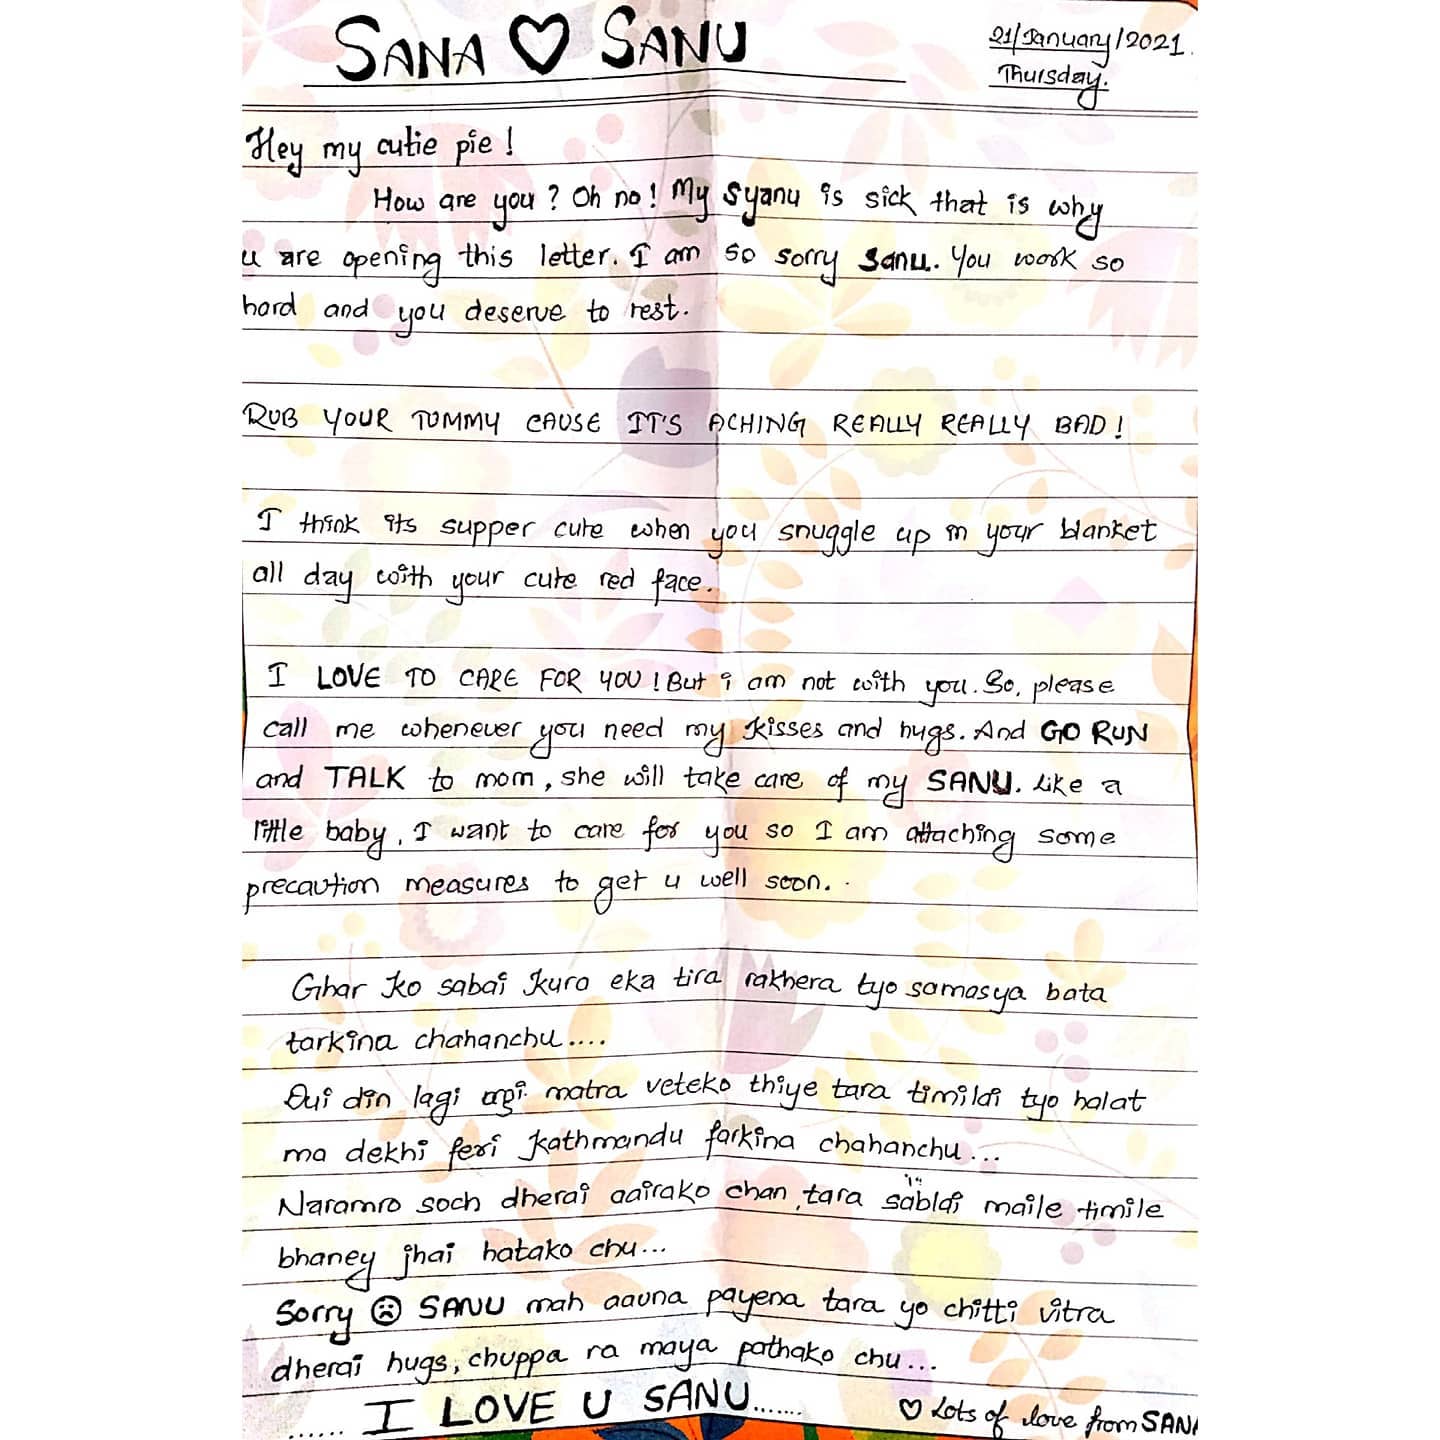 SANA ♡ SANU
21/January/2021.
Thursday.
Hey my cutie pie!
How are you? Oh no! My Syanu is sick that is why
u are opening this letter. I am so sorry Sanu. You work so
hard and you deserve to rest.
RUB YOUR TUMMY CAUSE IT'S ACHING REALLY REALLY BAD!
I think its supper cute when you snuggle up in your blanket
all day with your cute red face.
I LOVE TO CARE FOR YOU! But i am not with you. So, please
call me whenever you need my kisses and hugs. And GO RUN
and TALK to mom, she will take care of my SANU. Like a
little baby, I want to care for you so I am attaching some
precaution measures to get u well soon.
Ghar ko sabai kura eka tira rakhera tyo samasya bata
tarkina chahanchu....
Dui din lagi matra veteko thiye tara timilai tyo halat
ma dekhi feri kathmandu farkina chahanchu...
Naramro soch dherai aairako chan, tara sablai maile timile
bhaney jhai hatako chu...
Sorry ☹ SANU mah aauna payena tara yo chitti vitra
dherai hugs, chuppa ra maya pathako chu...
...... I LOVE U SANU.......
♡ Lots of love from SANA